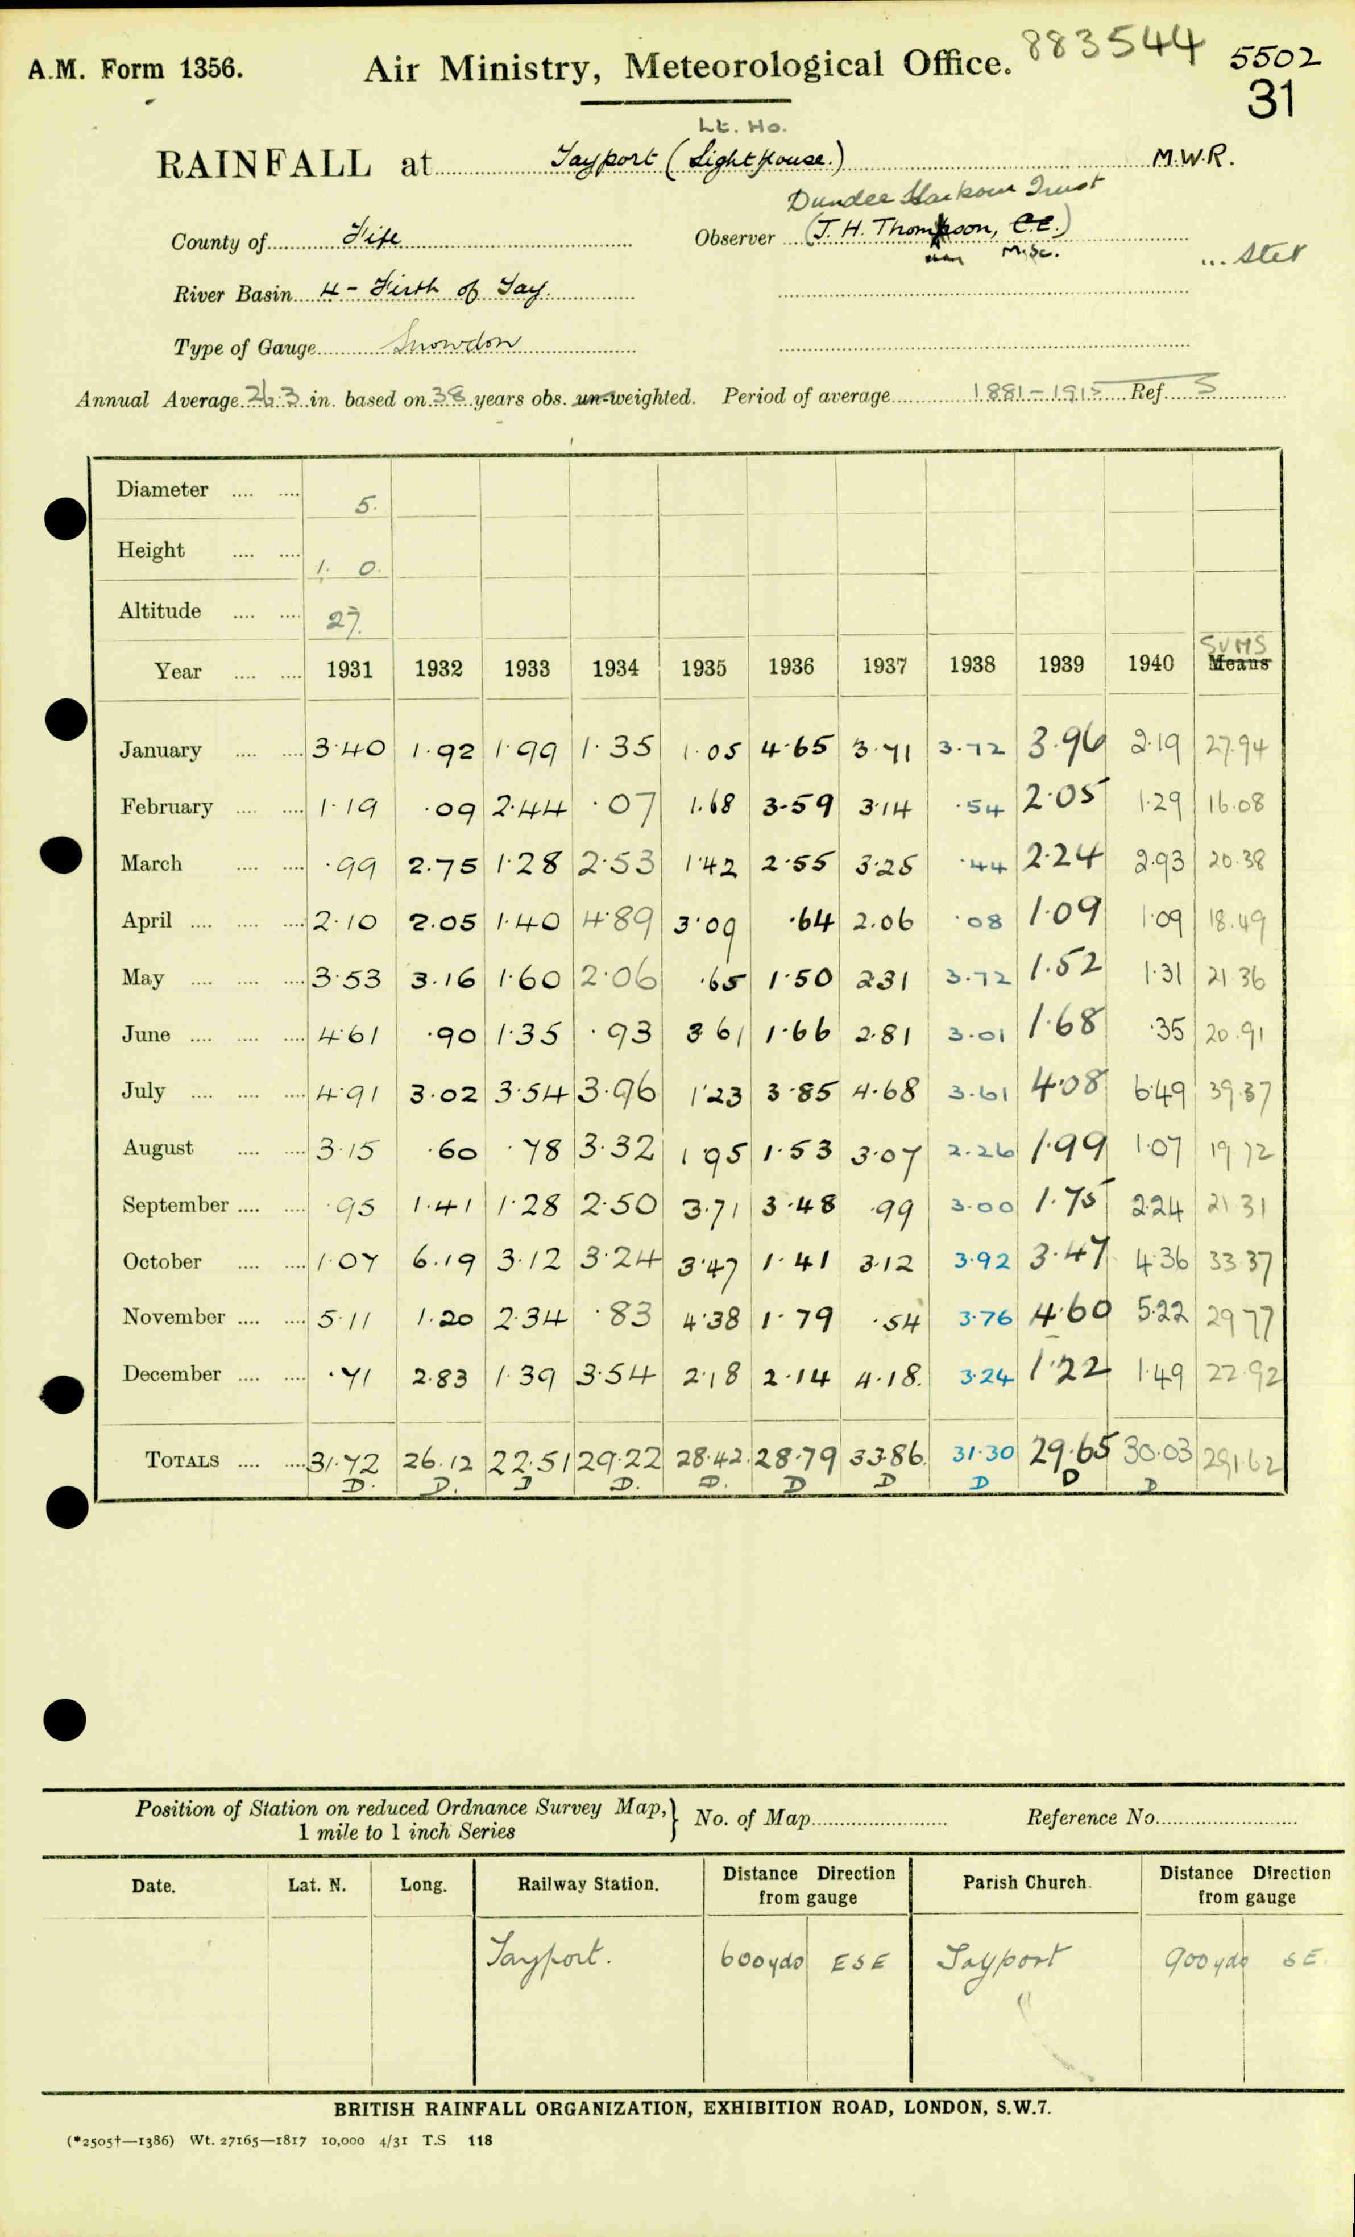 A.M. Form 1356.
Air Ministry, Meteorological Office.
883544
5502
31
Lt. Ho.
RAINFALL at Tayport (Lighthouse.) M.W.R.
Dundee Harbour Trust
County of Fife Observer (J. H. Thompson, C.E.)
M.Sc.
... Stet
River Basin 4 - Firth of Tay.
Type of Gauge Snowdon
Annual Average 26.3 in. based on 38 years obs. un-weighted. Period of average 1881-1915 Ref. 5
Diameter .... .... 5.
Height .... .... 1. 0.
Altitude .... .... 27.
SUMS
Year .... .... 1931 1932 1933 1934 1935 1936 1937 1938 1939 1940 Means
January .... .... 3.40 1.92 1.99 1.35 1.05 4.65 3.71 3.72 3.96 2.19 27.94
February .... .... 1.19 .09 2.44 .07 1.68 3.59 3.14 .54 2.05 1.29 16.08
March .... .... .99 2.75 1.28 2.53 1.42 2.55 3.25 .44 2.24 2.93 20.38
April .... .... .... 2.10 2.05 1.40 4.89 3.09 .64 2.06 .08 1.09 1.09 18.49
May .... .... .... 3.53 3.16 1.60 2.06 .65 1.50 2.31 3.72 1.52 1.31 21.36
June .... .... .... 4.61 .90 1.35 .93 3.61 1.66 2.81 3.01 1.68 .35 20.91
July .... .... .... 4.91 3.02 3.54 3.96 1.23 3.85 4.68 3.61 4.08 6.49 39.37
August .... .... 3.15 .60 .78 3.32 1.95 1.53 3.07 2.26 1.99 1.07 19.72
September .... .... .95 1.41 1.28 2.50 3.71 3.48 .99 3.00 1.75 2.24 21.31
October .... .... 1.07 6.19 3.12 3.24 3.47 1.41 3.12 3.92 3.47 4.36 33.37
November .... .... 5.11 1.20 2.34 .83 4.38 1.79 .54 3.76 4.60 5.22 29.77
December .... .... .71 2.83 1.39 3.54 2.18 2.14 4.18 3.24 1.22 1.49 22.92
TOTALS .... .... 31.72 26.12 22.51 29.22 28.42 28.79 33.86 31.30 29.65 30.03 291.62
D. D. D D. D. D D D D D
Position of Station on reduced Ordnance Survey Map, 1 mile to 1 inch Series } No. of Map Reference No.
Date. Lat. N. Long. Railway Station. Distance Direction from gauge Parish Church. Distance Direction from gauge
Tayport. 600 yds ESE Tayport 900 yds SE.
BRITISH RAINFALL ORGANIZATION, EXHIBITION ROAD, LONDON, S.W.7.
(*2505†—1386) Wt. 27165—1817 10,000 4/31 T.S 118